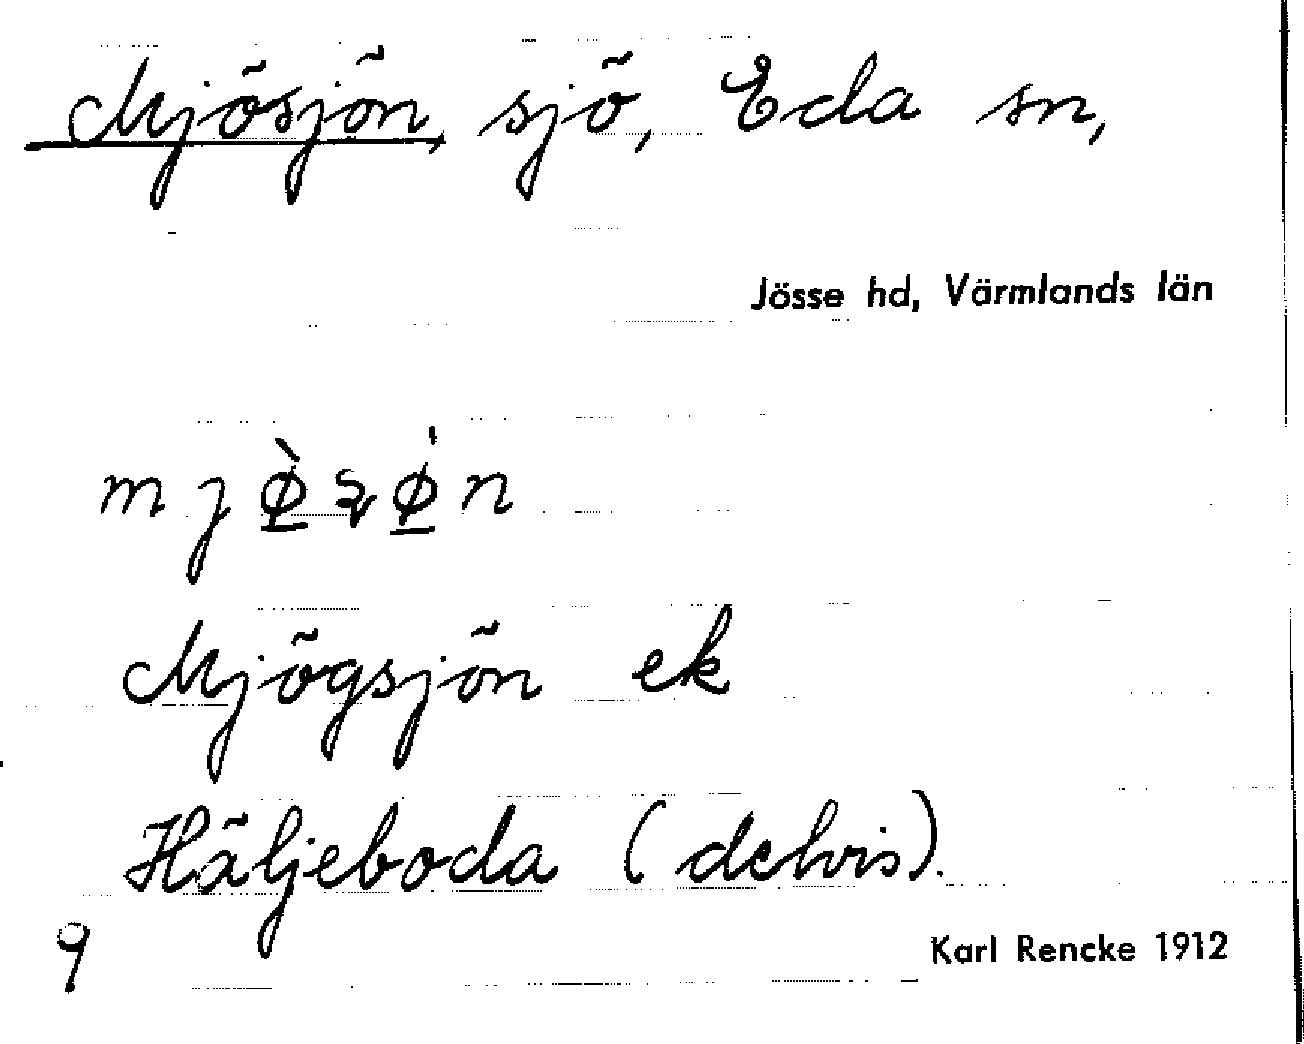 Mjösjön, sjö, Eda sn,
Jösse hd, Värmlands län
Mjögsjön ek
Häljeboda (delvis).
9
Karl Rencke 1912